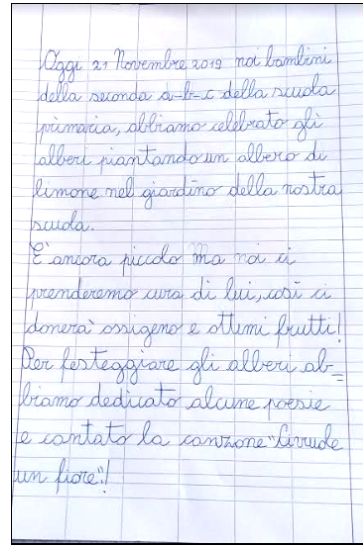 Oggi 21 Novembre 2019 noi bambini
della seconda a-b-c della scuola
primaria, abbiamo celebrato gli
alberi piantando un albero di
limone nel giardino della nostra
scuola.
E' ancora piccolo ma noi ci
prenderemo cura di lui, così ci
donerà ossigeno e ottimi frutti!
Per festeggiare gli alberi ab=
biamo dedicato alcune poesie
e cantato la canzone "Ci vuole
un fiore"!